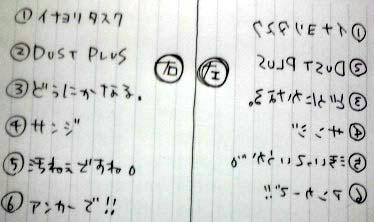 ① イナヨリタスク
② DUST PLUS
③ どうにかなる。
④ サンジ
⑤ ですね。
⑥ アンカーで!!
右
左
① イナヨリタスク
② DUST PLUS
③ どうにかなる。
④ サンジ
⑤
⑥ アンカーで!!